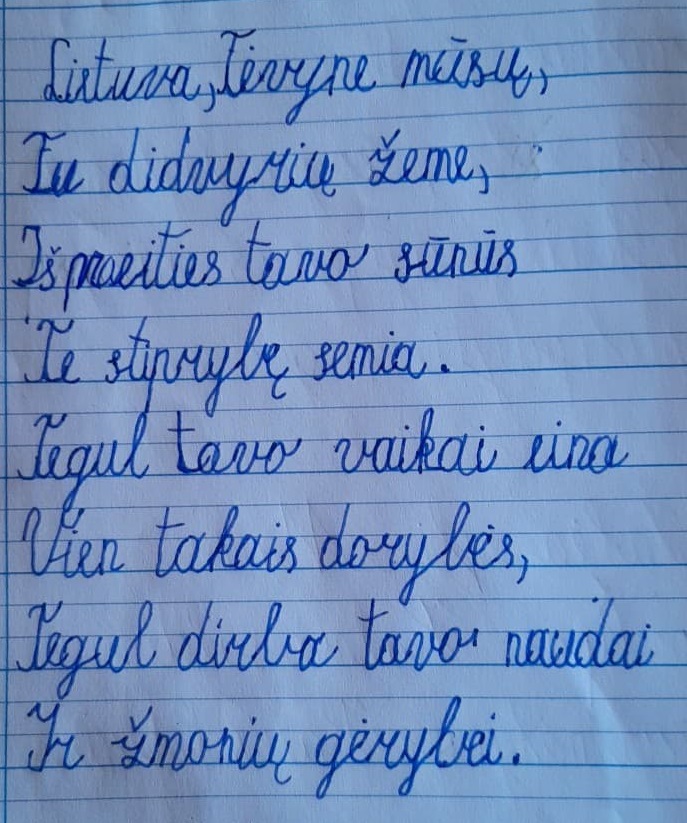 Lietuva, Tėvyne mūsų,
Tu didvyrių žeme,
Iš praeities tavo sūnūs
Te stiprybę semia.
Tegul tavo vaikai eina
Vien takais dorybės,
Tegul dirba tavo naudai
Ir žmonių gėrybei.